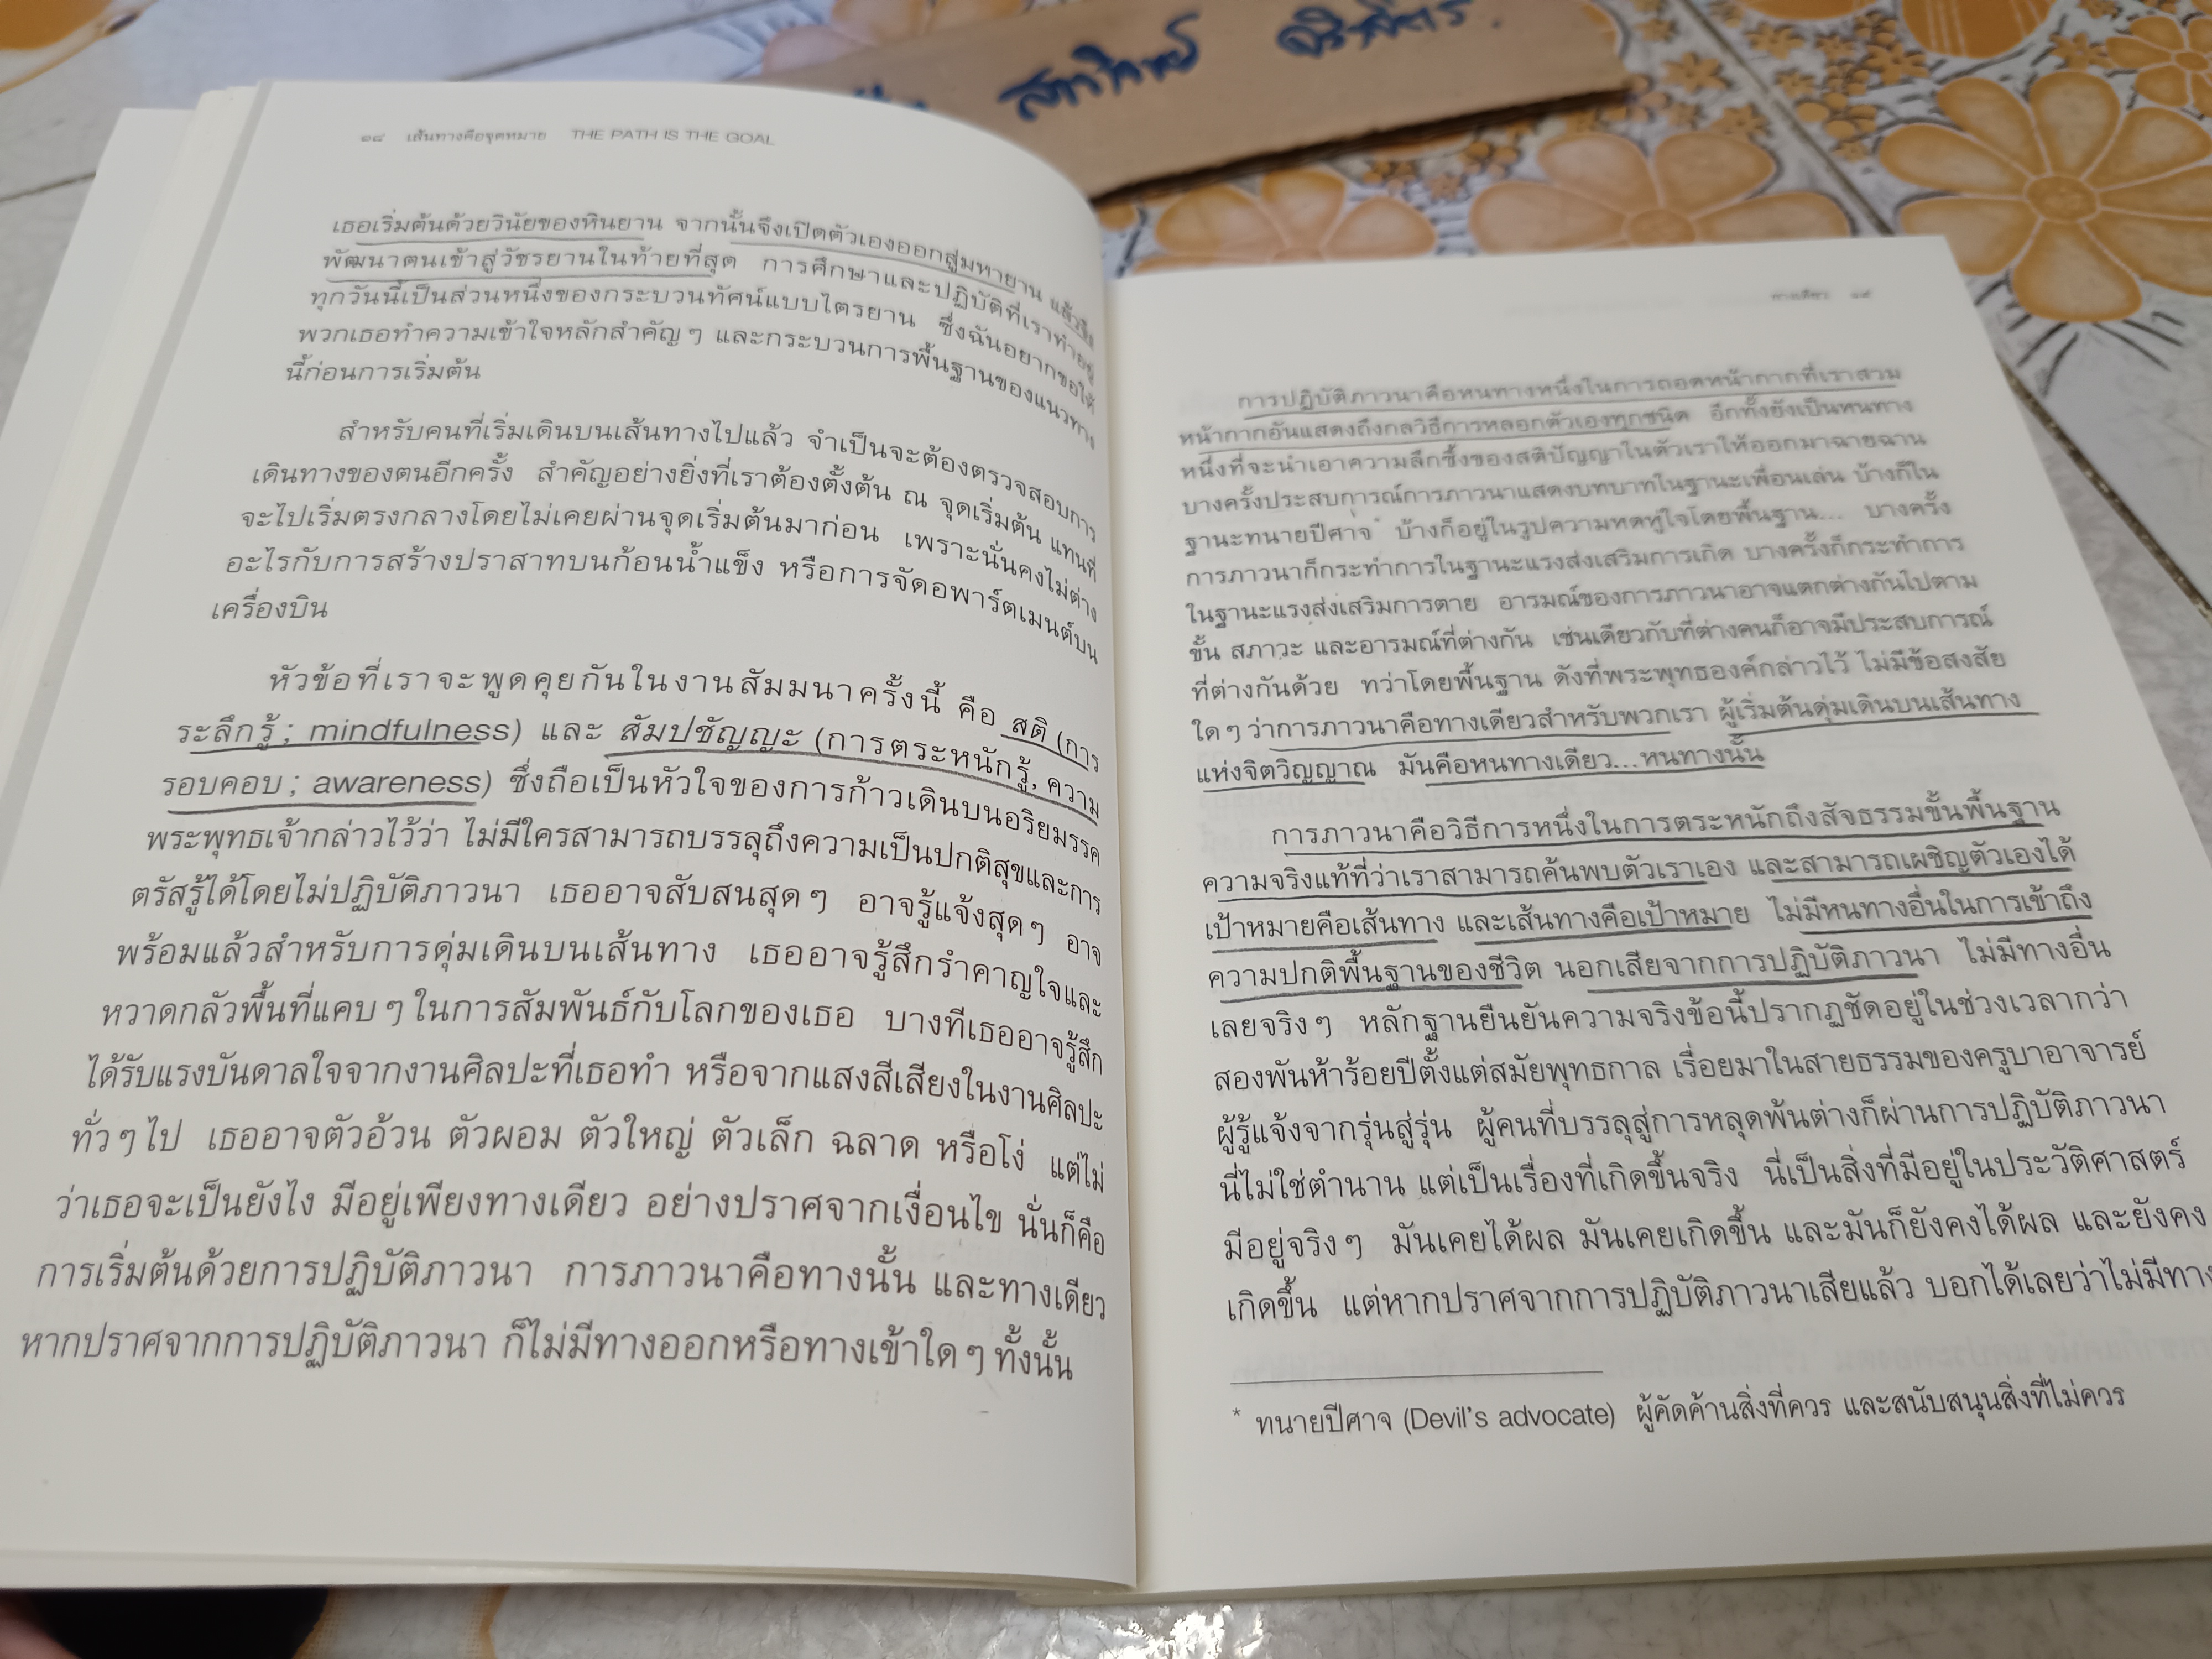 สถาวิทย์
๑๘ เส้นทางคือจุดหมาย THE PATH IS THE GOAL
เธอเริ่มต้นด้วยวินัยของหินยาน จากนั้นจึงเปิดตัวเองออกสู่มหายาน แล้วจึง
พัฒนาตนเข้าสู่วัชรยานในท้ายที่สุด การศึกษาและปฏิบัติที่เราทำอยู่
ทุกวันนี้เป็นส่วนหนึ่งของกระบวนทัศน์แบบไตรยาน ซึ่งฉันอยากขอให้
พวกเธอทำความเข้าใจหลักสำคัญๆ และกระบวนการพื้นฐานของแนวทาง
นี้ก่อนการเริ่มต้น
สำหรับคนที่เริ่มเดินบนเส้นทางไปแล้ว จำเป็นจะต้องตรวจสอบการ
เดินทางของตนอีกครั้ง สำคัญอย่างยิ่งที่เราต้องตั้งต้น ณ จุดเริ่มต้น แทนที่
จะไปเริ่มตรงกลางโดยไม่เคยผ่านจุดเริ่มต้นมาก่อน เพราะนั่นคงไม่ต่าง
อะไรกับการสร้างปราสาทบนก้อนน้ำแข็ง หรือการจัดอพาร์ตเมนต์บน
เครื่องบิน
หัวข้อที่เราจะพูดคุยกันในงานสัมมนาครั้งนี้ คือ สติ (การ
ระลึกรู้; mindfulness) และ สัมปชัญญะ (การตระหนักรู้, ความ
รอบคอบ; awareness) ซึ่งถือเป็นหัวใจของการก้าวเดินบนอริยมรรค
พระพุทธเจ้ากล่าวไว้ว่า ไม่มีใครสามารถบรรลุถึงความเป็นปกติสุขและการ
ตรัสรู้ได้โดยไม่ปฏิบัติภาวนา เธออาจสับสนสุดๆ อาจรู้แจ้งสุดๆ อาจ
พร้อมแล้วสำหรับการดุ่มเดินบนเส้นทาง เธออาจรู้สึกรำคาญใจและ
หวาดกลัวพื้นที่แคบๆ ในการสัมพันธ์กับโลกของเธอ บางทีเธออาจรู้สึก
ได้รับแรงบันดาลใจจากงานศิลปะที่เธอทำ หรือจากแสงสีเสียงในงานศิลปะ
ทั่วๆ ไป เธออาจตัวอ้วน ตัวผอม ตัวใหญ่ ตัวเล็ก ฉลาด หรือโง่ แต่ไม่
ว่าเธอจะเป็นยังไง มีอยู่เพียงทางเดียว อย่างปราศจากเงื่อนไข นั่นก็คือ
การเริ่มต้นด้วยการปฏิบัติภาวนา การภาวนาคือทางนั้น และทางเดียว
หากปราศจากการปฏิบัติภาวนา ก็ไม่มีทางออกหรือทางเข้าใดๆ ทั้งนั้น
ทางเดียว ๑๙
การปฏิบัติภาวนาคือหนทางหนึ่งในการถอดหน้ากากที่เราสวม
หน้ากากอันแสดงถึงกลวิธีการหลอกตัวเองทุกชนิด อีกทั้งยังเป็นหนทาง
หนึ่งที่จะนำเอาความลึกซึ้งของสติปัญญาในตัวเราให้ออกมาฉายฉาน
บางครั้งประสบการณ์การภาวนาแสดงบทบาทในฐานะเพื่อนเล่น บ้างก็ใน
ฐานะทนายปีศาจ* บ้างก็อยู่ในรูปความหดหู่ใจโดยพื้นฐาน... บางครั้ง
การภาวนาก็กระทำการในฐานะแรงส่งเสริมการเกิด บางครั้งก็กระทำการ
ในฐานะแรงส่งเสริมการตาย อารมณ์ของการภาวนาอาจแตกต่างกันไปตาม
ขั้น สภาวะ และอารมณ์ที่ต่างกัน เช่นเดียวกับที่ต่างคนก็อาจมีประสบการณ์
ที่ต่างกันด้วย ทว่าโดยพื้นฐาน ดังที่พระพุทธองค์กล่าวไว้ ไม่มีข้อสงสัย
ใดๆ ว่าการภาวนาคือทางเดียวสำหรับพวกเรา ผู้เริ่มต้นดุ่มเดินบนเส้นทาง
แห่งจิตวิญญาณ มันคือหนทางเดียว...หนทางนั้น
การภาวนาคือวิธีการหนึ่งในการตระหนักถึงสัจธรรมขั้นพื้นฐาน
ความจริงแท้ที่ว่าเราสามารถค้นพบตัวเราเอง และสามารถเผชิญตัวเองได้
เป้าหมายคือเส้นทาง และเส้นทางคือเป้าหมาย ไม่มีหนทางอื่นในการเข้าถึง
ความปกติพื้นฐานของชีวิต นอกเสียจากการปฏิบัติภาวนา ไม่มีทางอื่น
เลยจริงๆ หลักฐานยืนยันความจริงข้อนี้ปรากฏชัดอยู่ในช่วงเวลากว่า
สองพันห้าร้อยปีตั้งแต่สมัยพุทธกาล เรื่อยมาในสายธรรมของครูบาอาจารย์
ผู้รู้แจ้งจากรุ่นสู่รุ่น ผู้คนที่บรรลุสู่การหลุดพ้นต่างก็ผ่านการปฏิบัติภาวนา
นี่ไม่ใช่ตำนาน แต่เป็นเรื่องที่เกิดขึ้นจริง นี่เป็นสิ่งที่มีอยู่ในประวัติศาสตร์
มีอยู่จริงๆ มันเคยได้ผล มันเคยเกิดขึ้น และมันก็ยังคงได้ผล และยังคง
เกิดขึ้น แต่หากปราศจากการปฏิบัติภาวนาเสียแล้ว บอกได้เลยว่าไม่มีทาง
* ทนายปีศาจ (Devil's advocate) ผู้คัดค้านสิ่งที่ควร และสนับสนุนสิ่งที่ไม่ควร